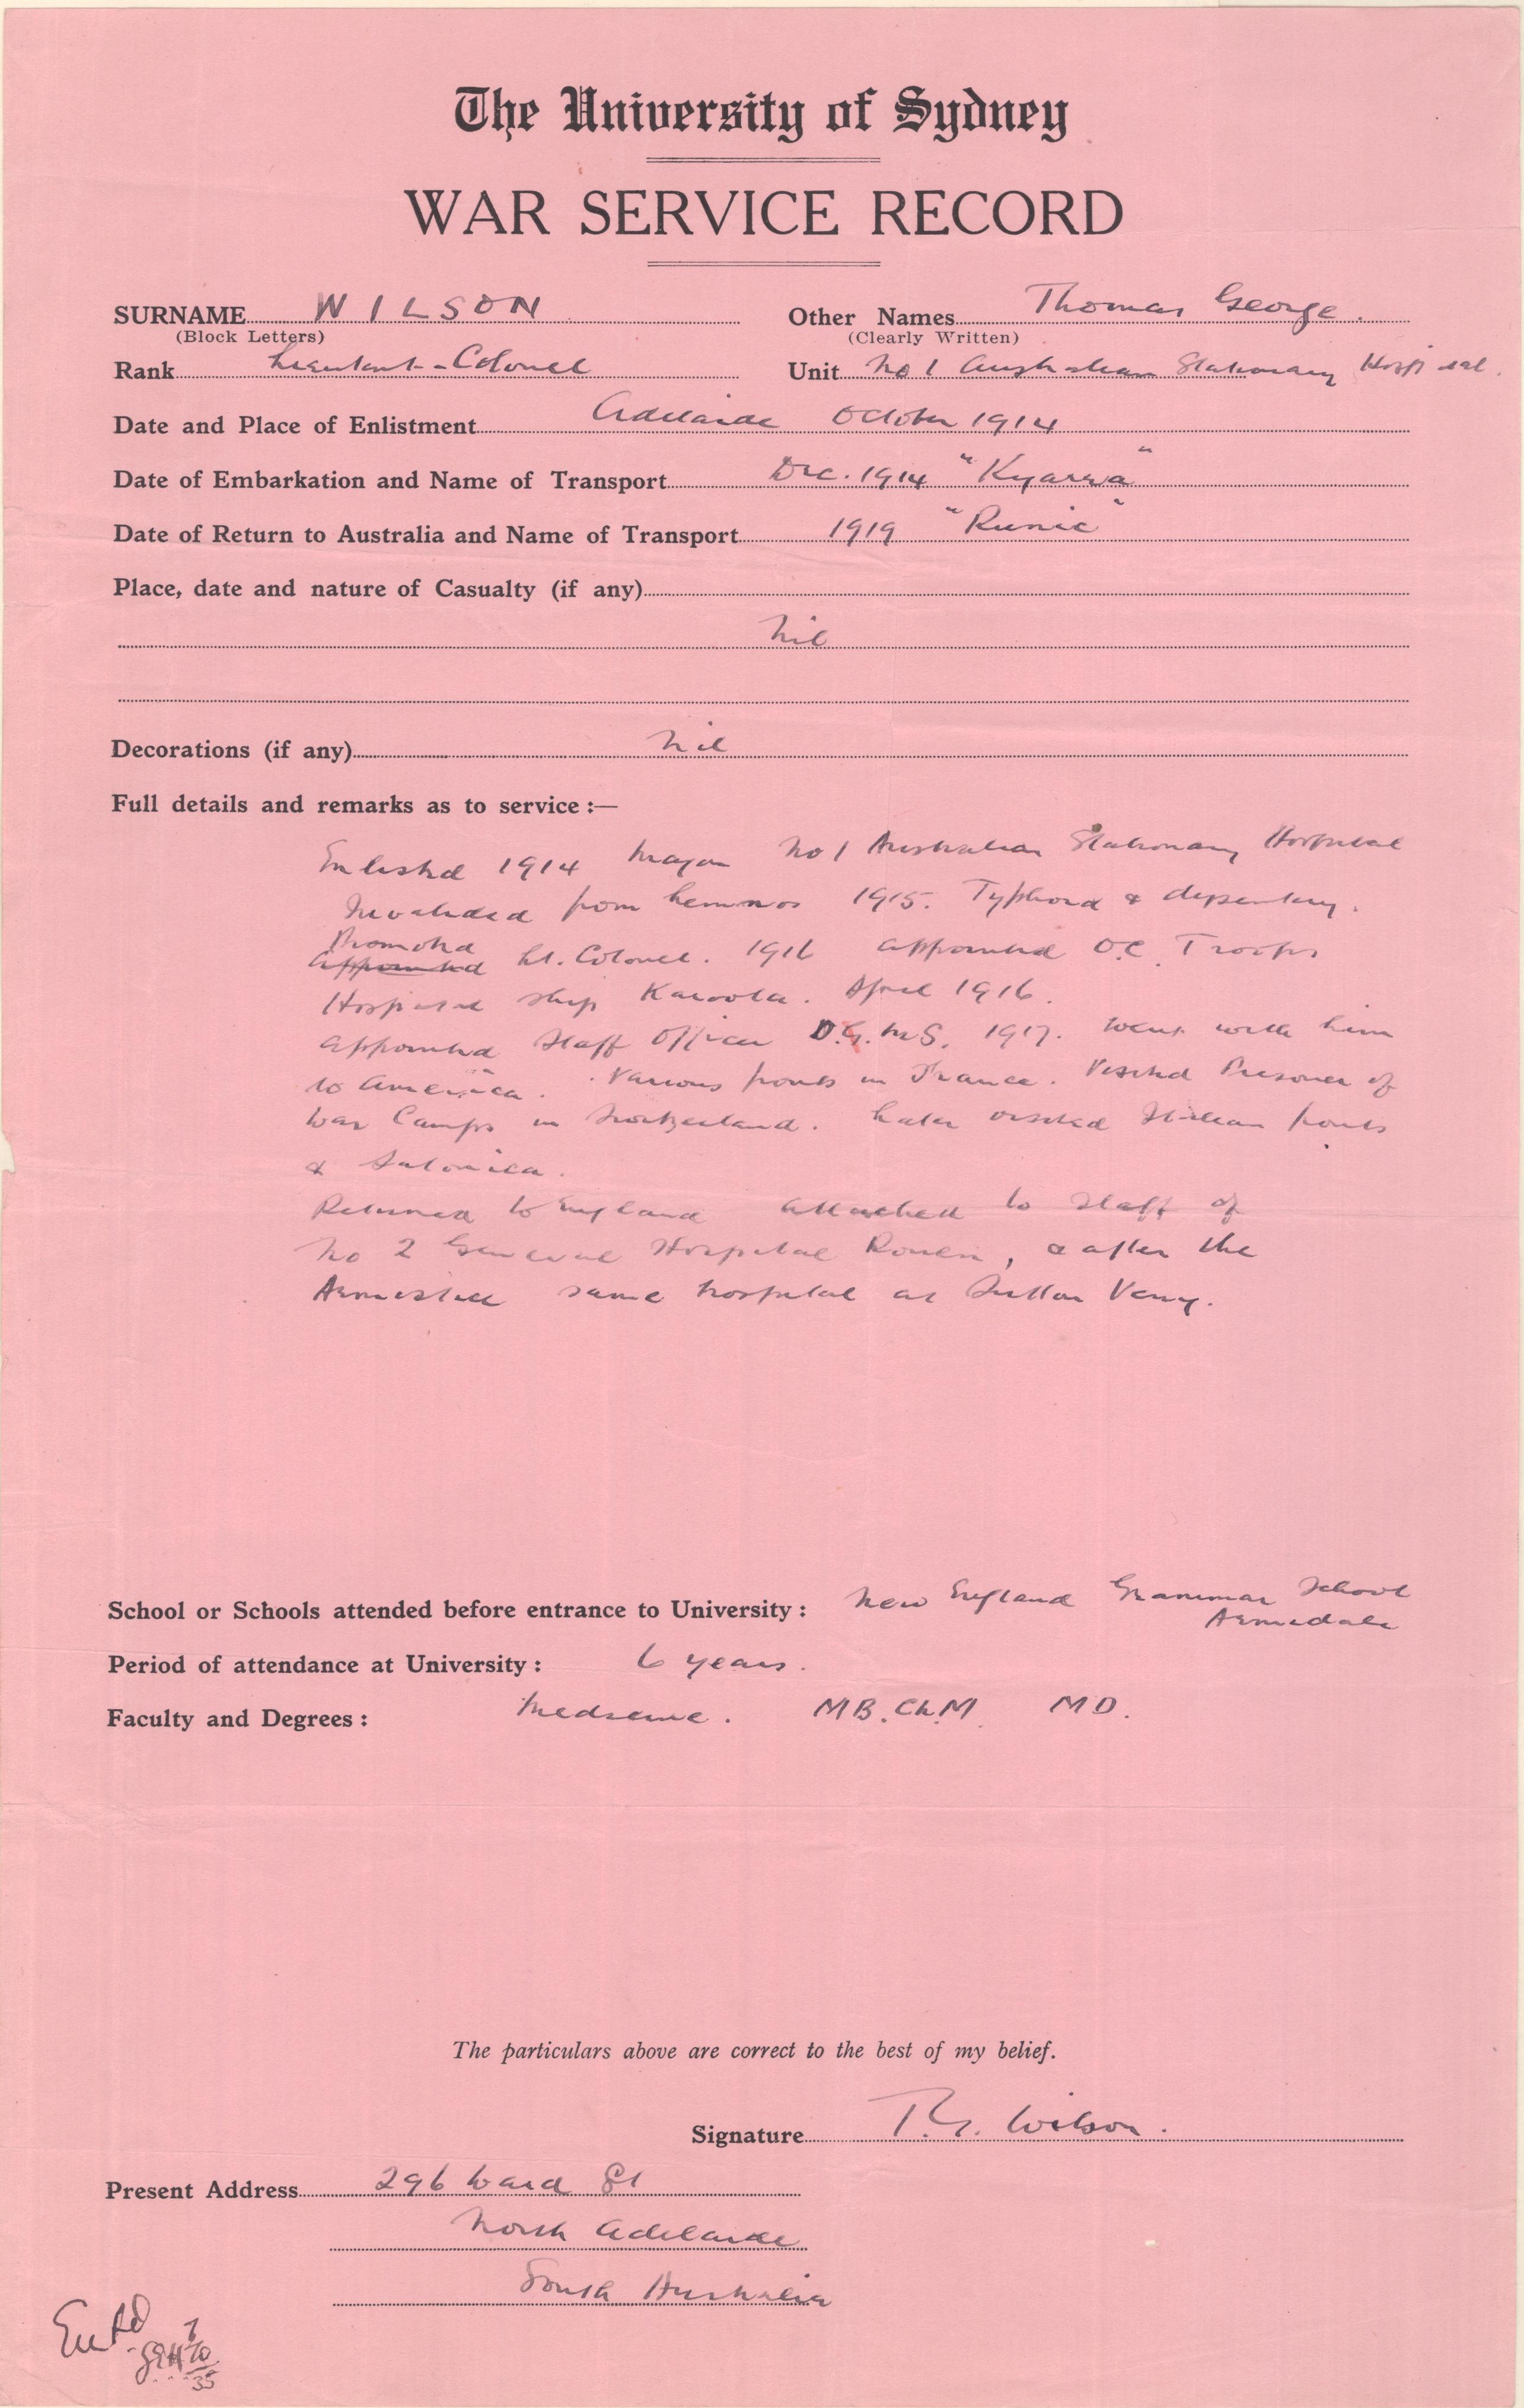 The University of Sydney
WAR SERVICE RECORD
SURNAME WILSON Other Names Thomas George.
(Block Letters) (Clearly Written)
Rank Lieutant-Colonel Unit No 1 Australian Stationary Hospital.
Date and Place of Enlistment Adelaide October 1914
Date of Embarkation and Name of Transport Dec. 1914 "Kyarra"
Date of Return to Australia and Name of Transport 1919 "Runic"
Place, date and nature of Casualty (if any)
Nil
Decorations (if any) Nil
Full details and remarks as to service :—
Enlisted 1914 Major No 1 Australian Stationary Hospital
Invalided from Lemnos 1915. Typhoid & dysentery.
Promoted
Appointed Lt. Colonel. 1916 appointed O.C. Troops
Hospital ship Karoola. April 1916.
Appointed Staff Officer D.G.M.S. 1917. Went with him
to America. Various fronts in France. Visited Prisoner of
War Camps in Switzerland. Later visited Italian fronts
& Salonica.
Returned to England attached to staff of
No 2 General Hospital Rouen, & after the
Armistice same hospital at Sutton Veny.
School or Schools attended before entrance to University : New England Grammar School
Armidale
Period of attendance at University : 6 years.
Faculty and Degrees : Medicine. MB.Ch.M. MD.
The particulars above are correct to the best of my belief.
Signature T.G. Wilson.
Present Address 296 Ward St
North Adelaide
South Australia
Entd